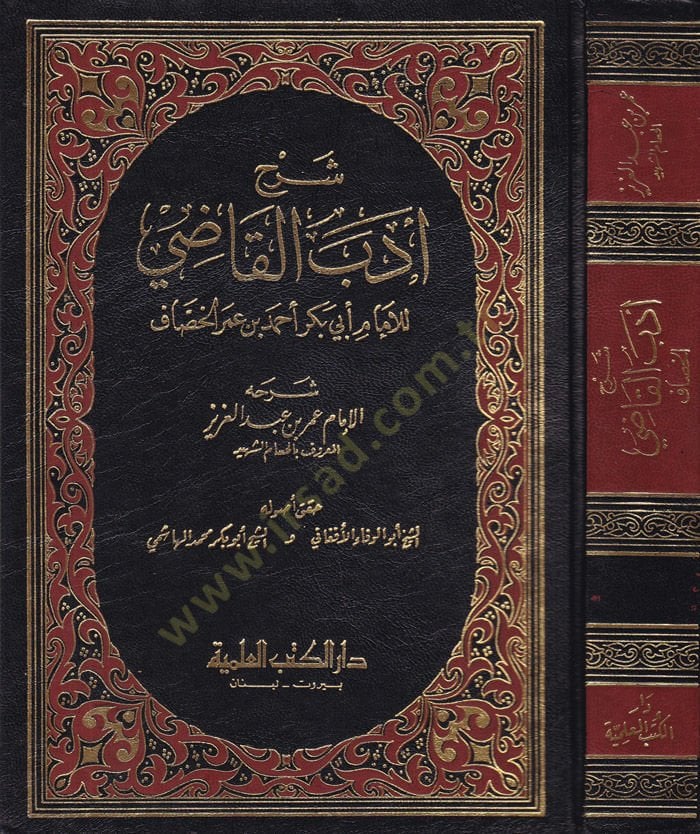 شرح
أدب القاضي
للإمام أبي بكر أحمد بن عمر الخصاف
شرحه
الإمام عمر بن عبد العزيز
المعروف بالحسام الشهيد
حقق أصوله
الشيخ أبو الوفاء الأفغاني و الشيخ أبو بكر محمد الهاشمي
دار الكتب العلمية
بيروت - لبنان
www.irsad.com.t
عمر بن عبد العزيز
الحسام الشهيد
شرح
أدب القاضي
الخصاف
دار
الكتب العلمية